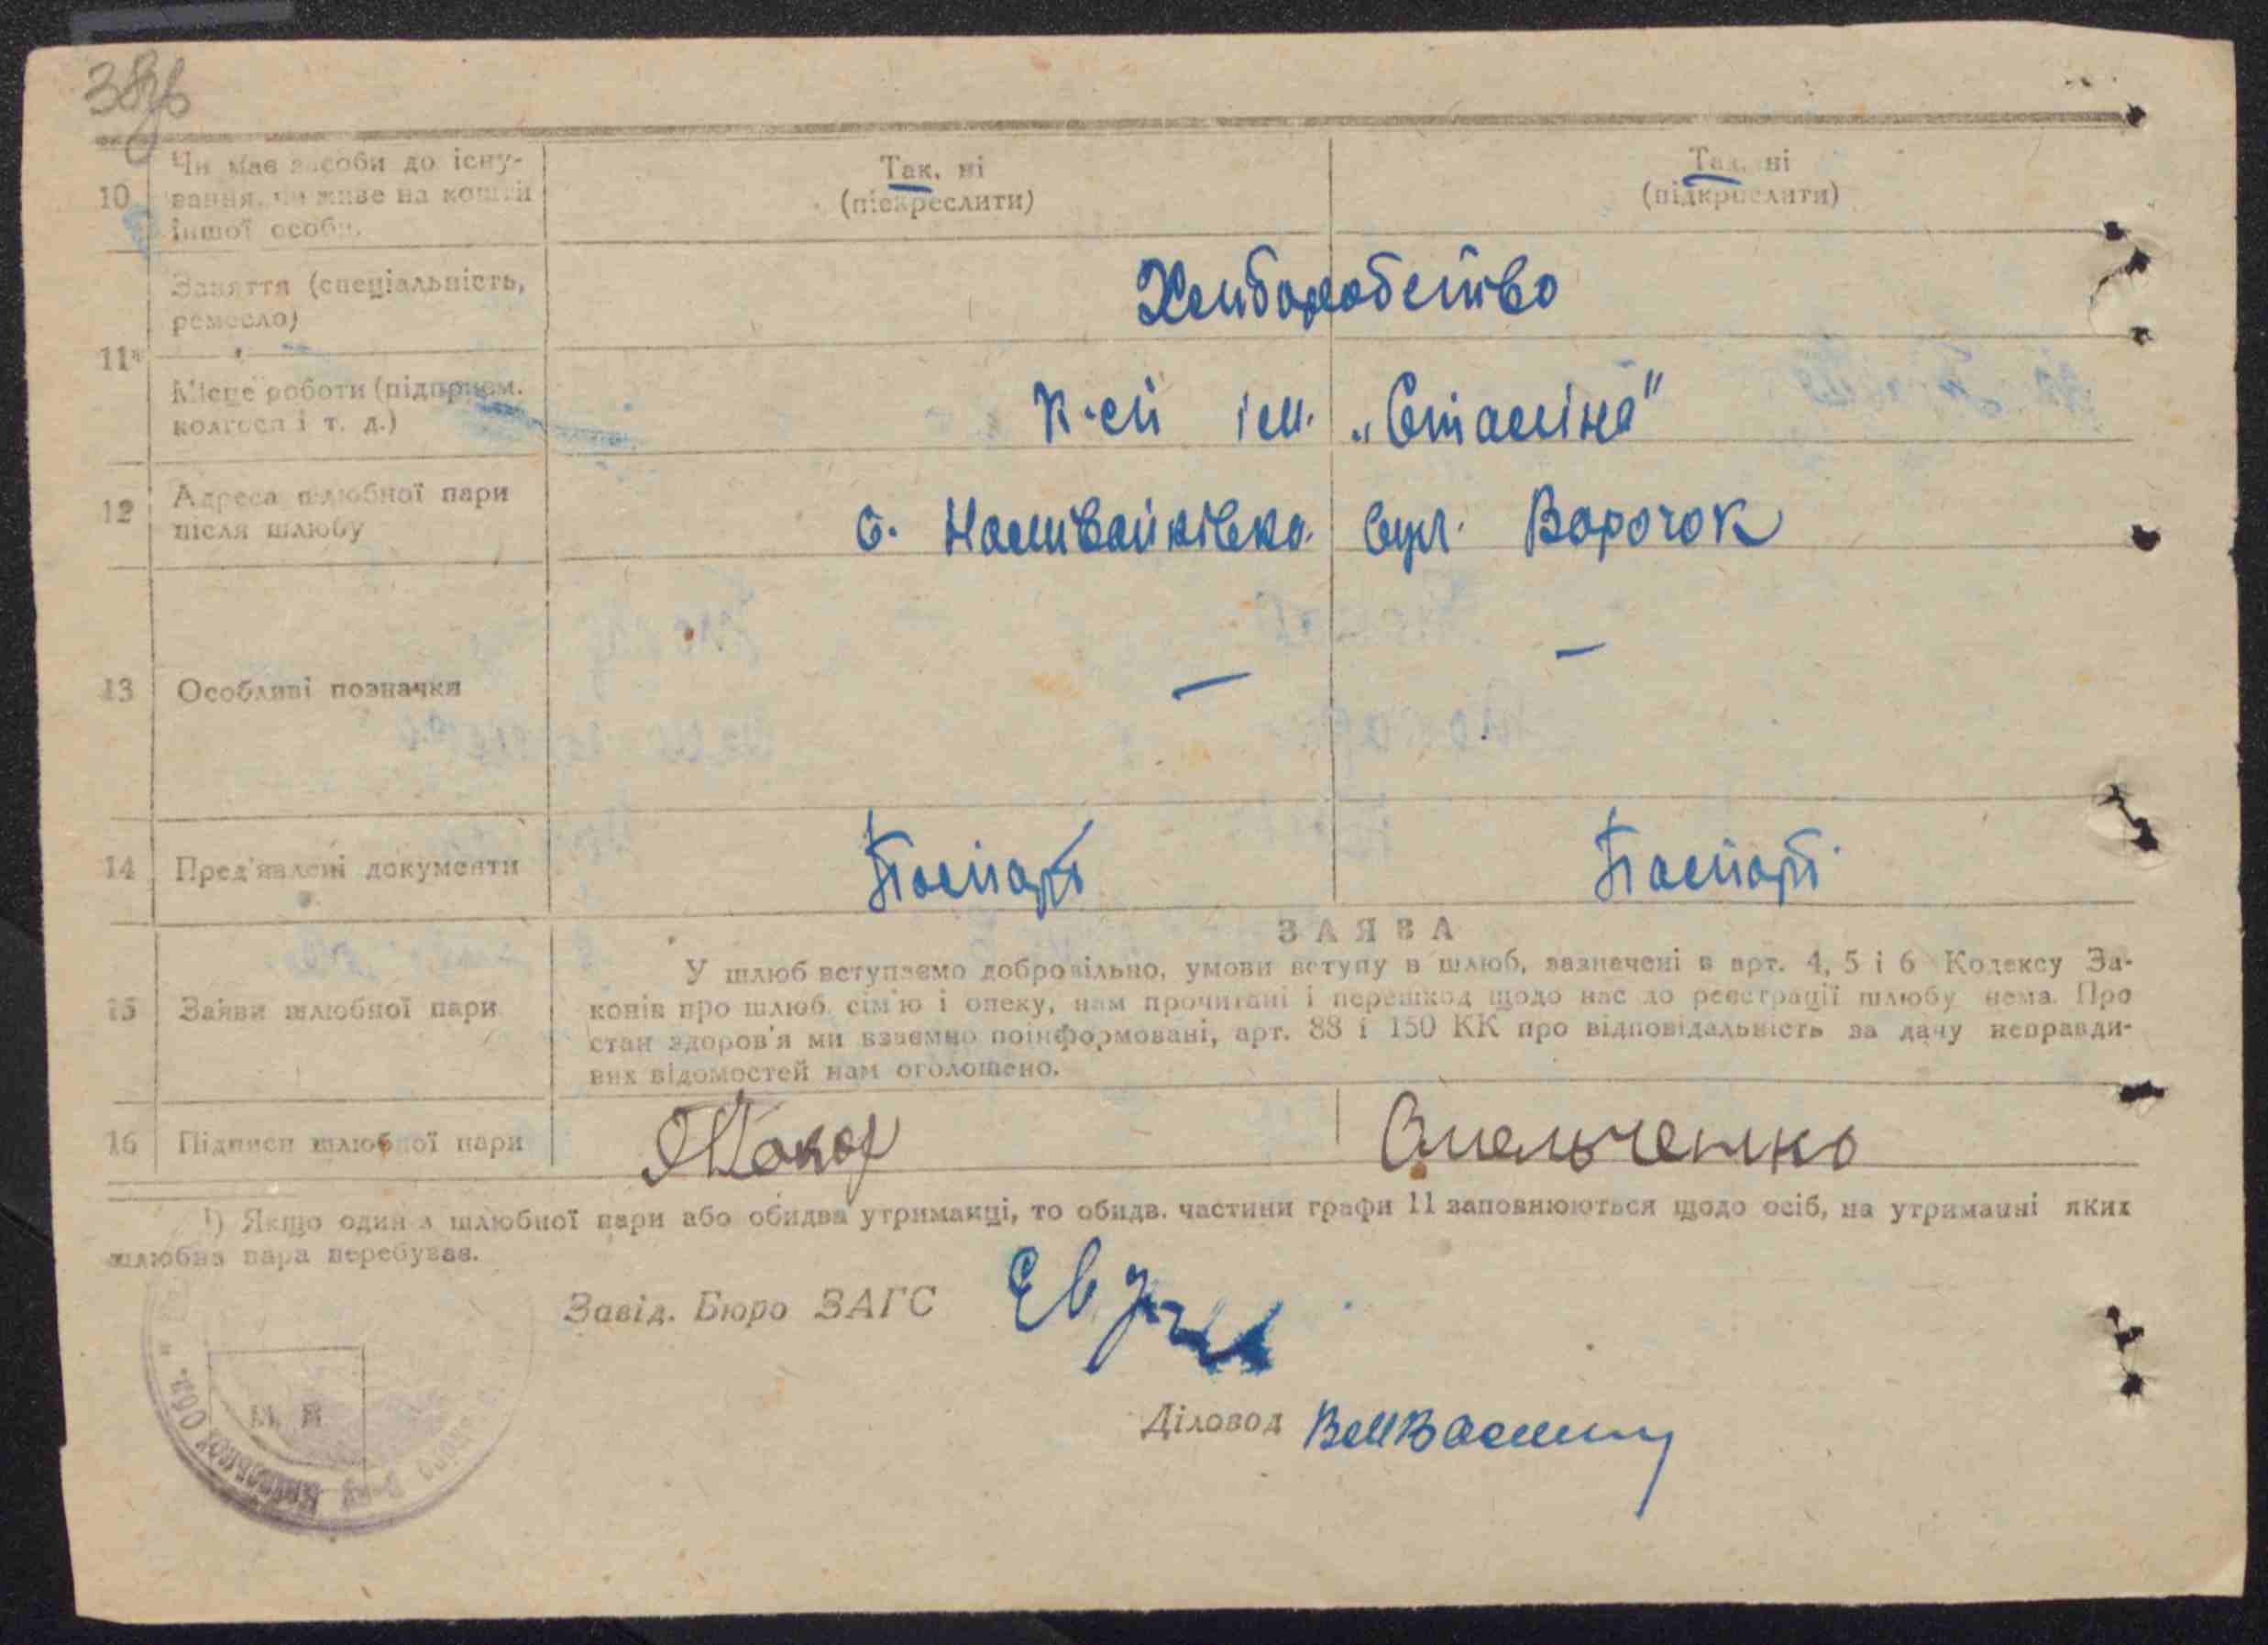 38зв
10 Чи має засоби до існування, чи живе на кошти іншої особи. Так, ні (підкреслити) Так, ні (підкреслити)
11¹) Заняття (спеціальність, ремесло) Хліборобство
Місце роботи (підприєм. колгосп і т. д.) К-сп ім. „Сталіна"
12 Адреса шлюбної пари після шлюбу с. Наливайківка вул. Ворочок
13 Особливі позначки — —
14 Пред'явлені документи Паспорт Паспорт
15 Заяви шлюбної пари
ЗАЯВА
У шлюб вступаємо добровільно, умови вступу в шлюб, зазначені в арт. 4, 5 і 6 Кодексу За-
конів про шлюб, сім'ю і опеку, нам прочитані і перешкод щодо нас до реєстрації шлюбу нема. Про
стан здоров'я ми взаємно поінформовані, арт. 88 і 150 КК про відповідальність за дачу неправди-
вих відомостей нам оголошено.
16 Підписи шлюбної пари Токар Омельченко
¹) Якщо один з шлюбної пари або обидва утриманці, то обидв. частини графи 11 заповнюються щодо осіб, на утриманні яких
шлюбна пара перебуває.
Завід. Бюро ЗАГС
Діловод
М. П.